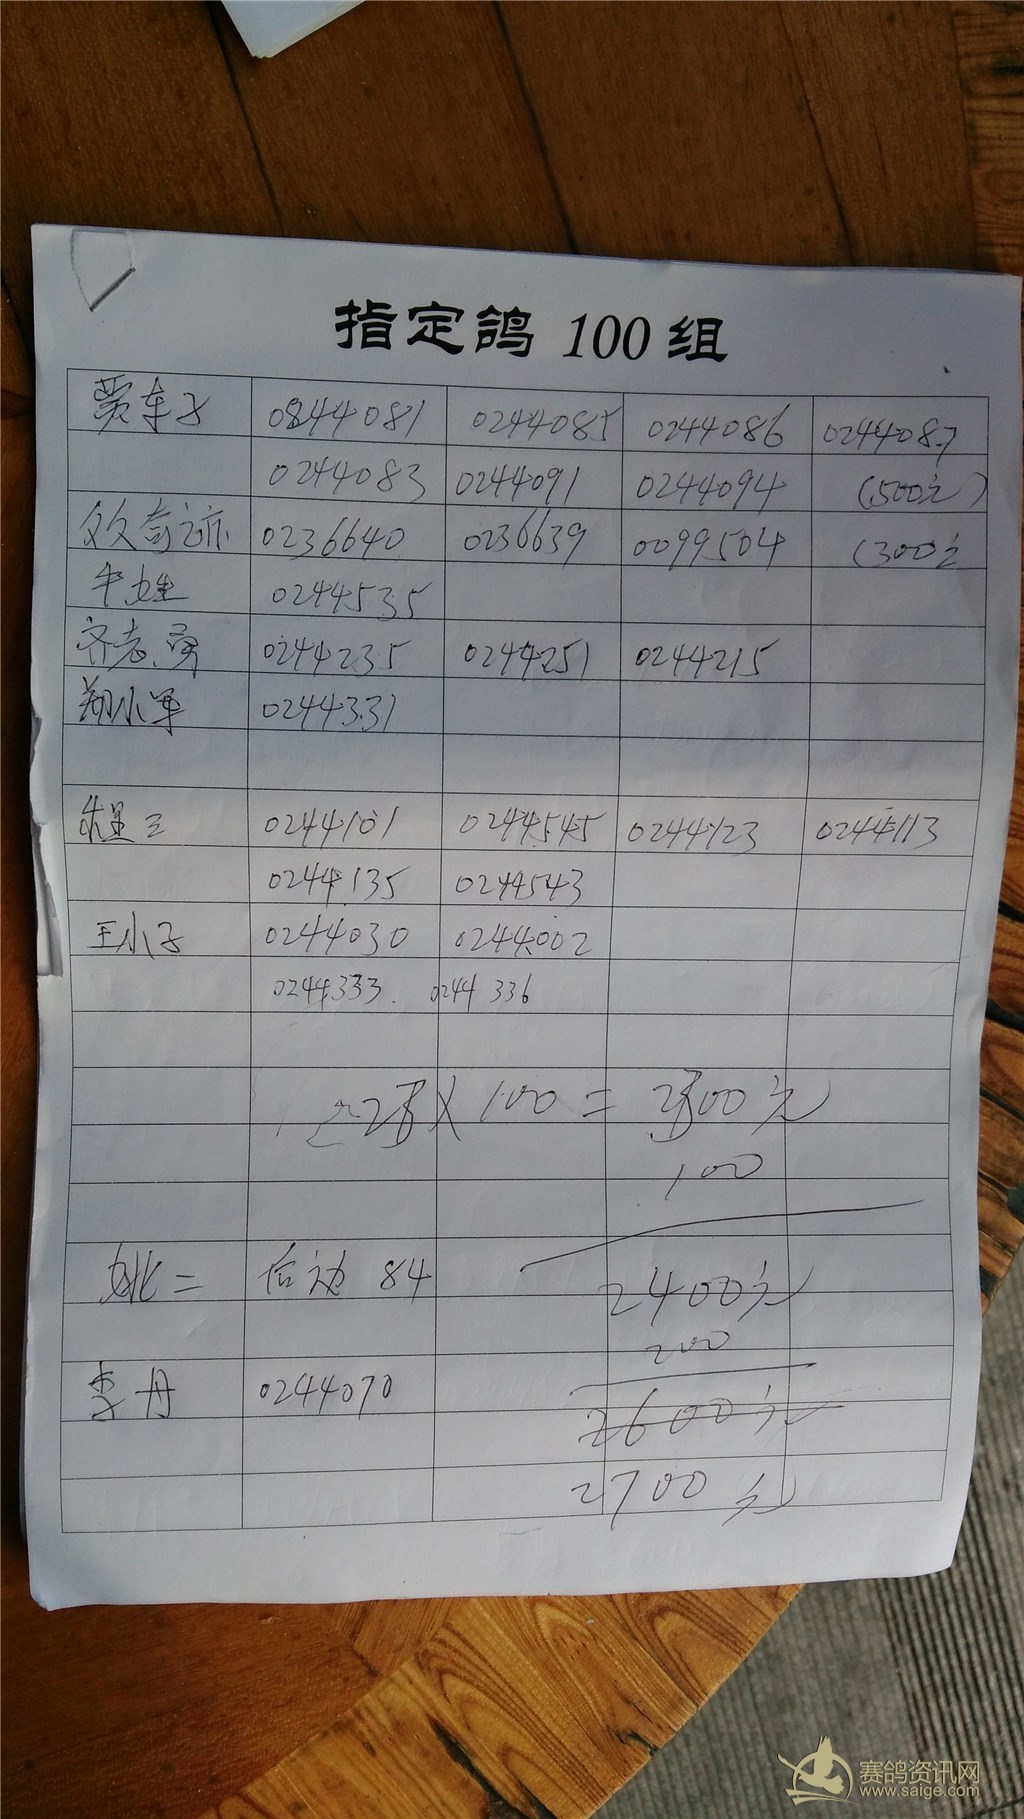 指定鸽 100 组
贾车子 0844081 0244085 0244086 0244087
0244083 0244091 0244094 (500元)
奇迹 0236640 0236639 0099504 (300元
牛 0244535
齐老 0244235 0244251 0244215
郑小军 0244331
程三 0244101 0244545 0244123 0244113
0244135 0244543
王小子 0244030 0244002
0244333. 0244 336
× 100 = 2300元
100
姚二 后边 84
2400元
200
李丹 0244070
2600元
2700元
赛鸽资讯网
www.saige.com